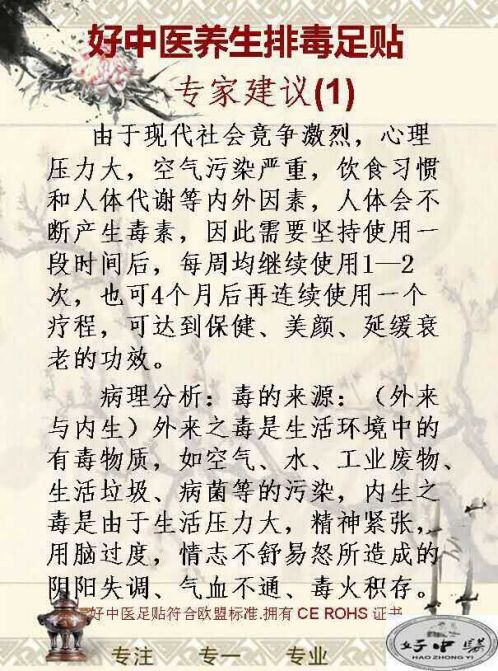 好中医养生排毒足贴
专家建议(1)
由于现代社会竟争激烈，心理
压力大，空气污染严重，饮食习惯
和人体代谢等内外因素，人体会不
断产生毒素，因此需要坚持使用一
段时间后，每周均继续使用1—2
次，也可4个月后再连续使用一个
疗程，可达到保健、美颜、延缓衰
老的功效。
病理分析：毒的来源：（外来
与内生）外来之毒是生活环境中的
有毒物质，如空气、水、工业废物、
生活垃圾、病菌等的污染，内生之
毒是由于生活压力大，精神紧张，
用脑过度，情志不舒易怒所造成的
阴阳失调、气血不通、毒火积存。
好中医足贴符合欧盟标准.拥有CE ROHS 证书
专注 专一 专业
好中医
HAO ZHONG YI